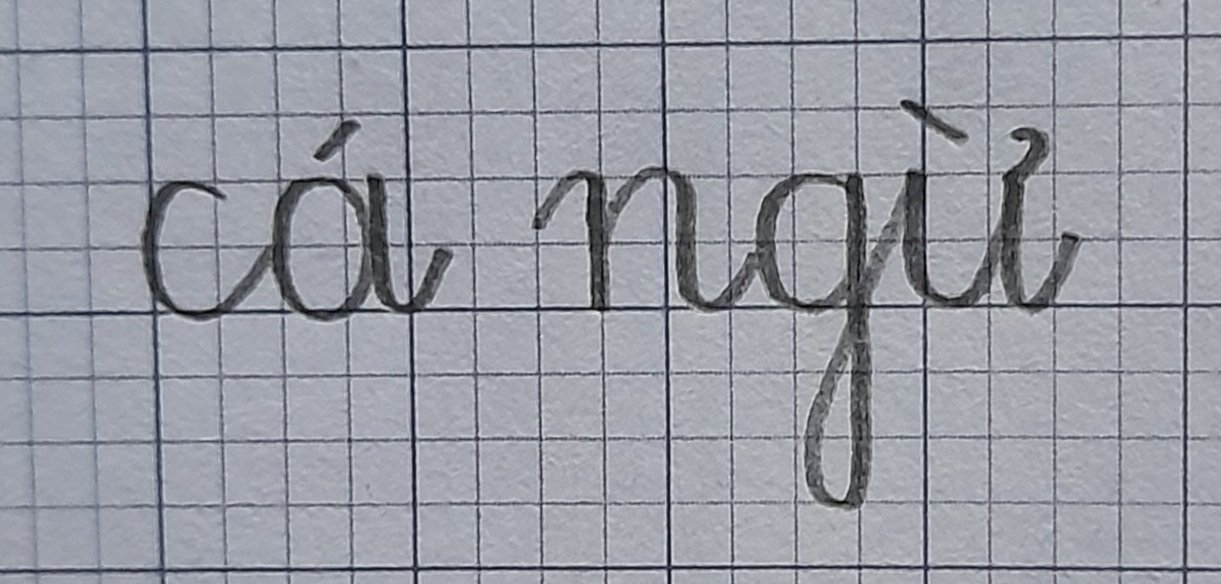 cá ngừ